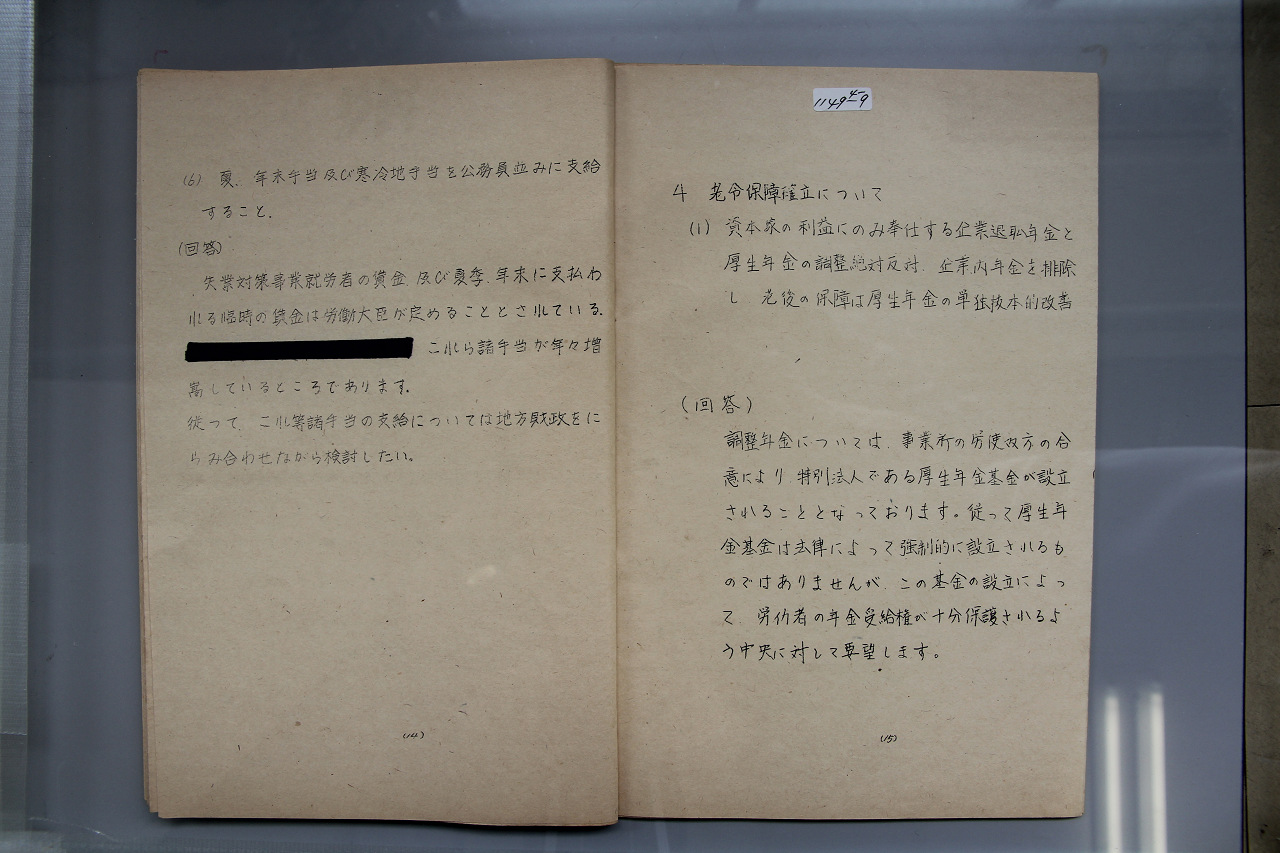 (6) 夏、年末手当及び寒冷地手当を公務員並みに支給
すること。
(回答)
失業対策事業就労者の賃金、及び夏季、年末に支払わ
れる臨時の賃金は労働大臣が定めることとされている。
これら諸手当が年々増
嵩しているところであります。
従つて、これ等諸手当の支給については地方財政をに
らみ合わせながら検討したい。
(14)
1149 4-9
4 老令保障確立について
(1) 資本家の利益にのみ奉仕する企業退職年金と
厚生年金の調整絶対反対、企業内年金を排除
し、老後の保障は厚生年金の単独抜本的改善
(回答)
調整年金については、事業所の労使双方の合
意により、特別法人である厚生年金基金が設立
されることとなっております。従って厚生年
金基金は法律によって強制的に設立されるも
のではありませんが、この基金の設立によっ
て、労仂者の年金受給権が十分保護されるよ
う中央に対して要望します。
(15)